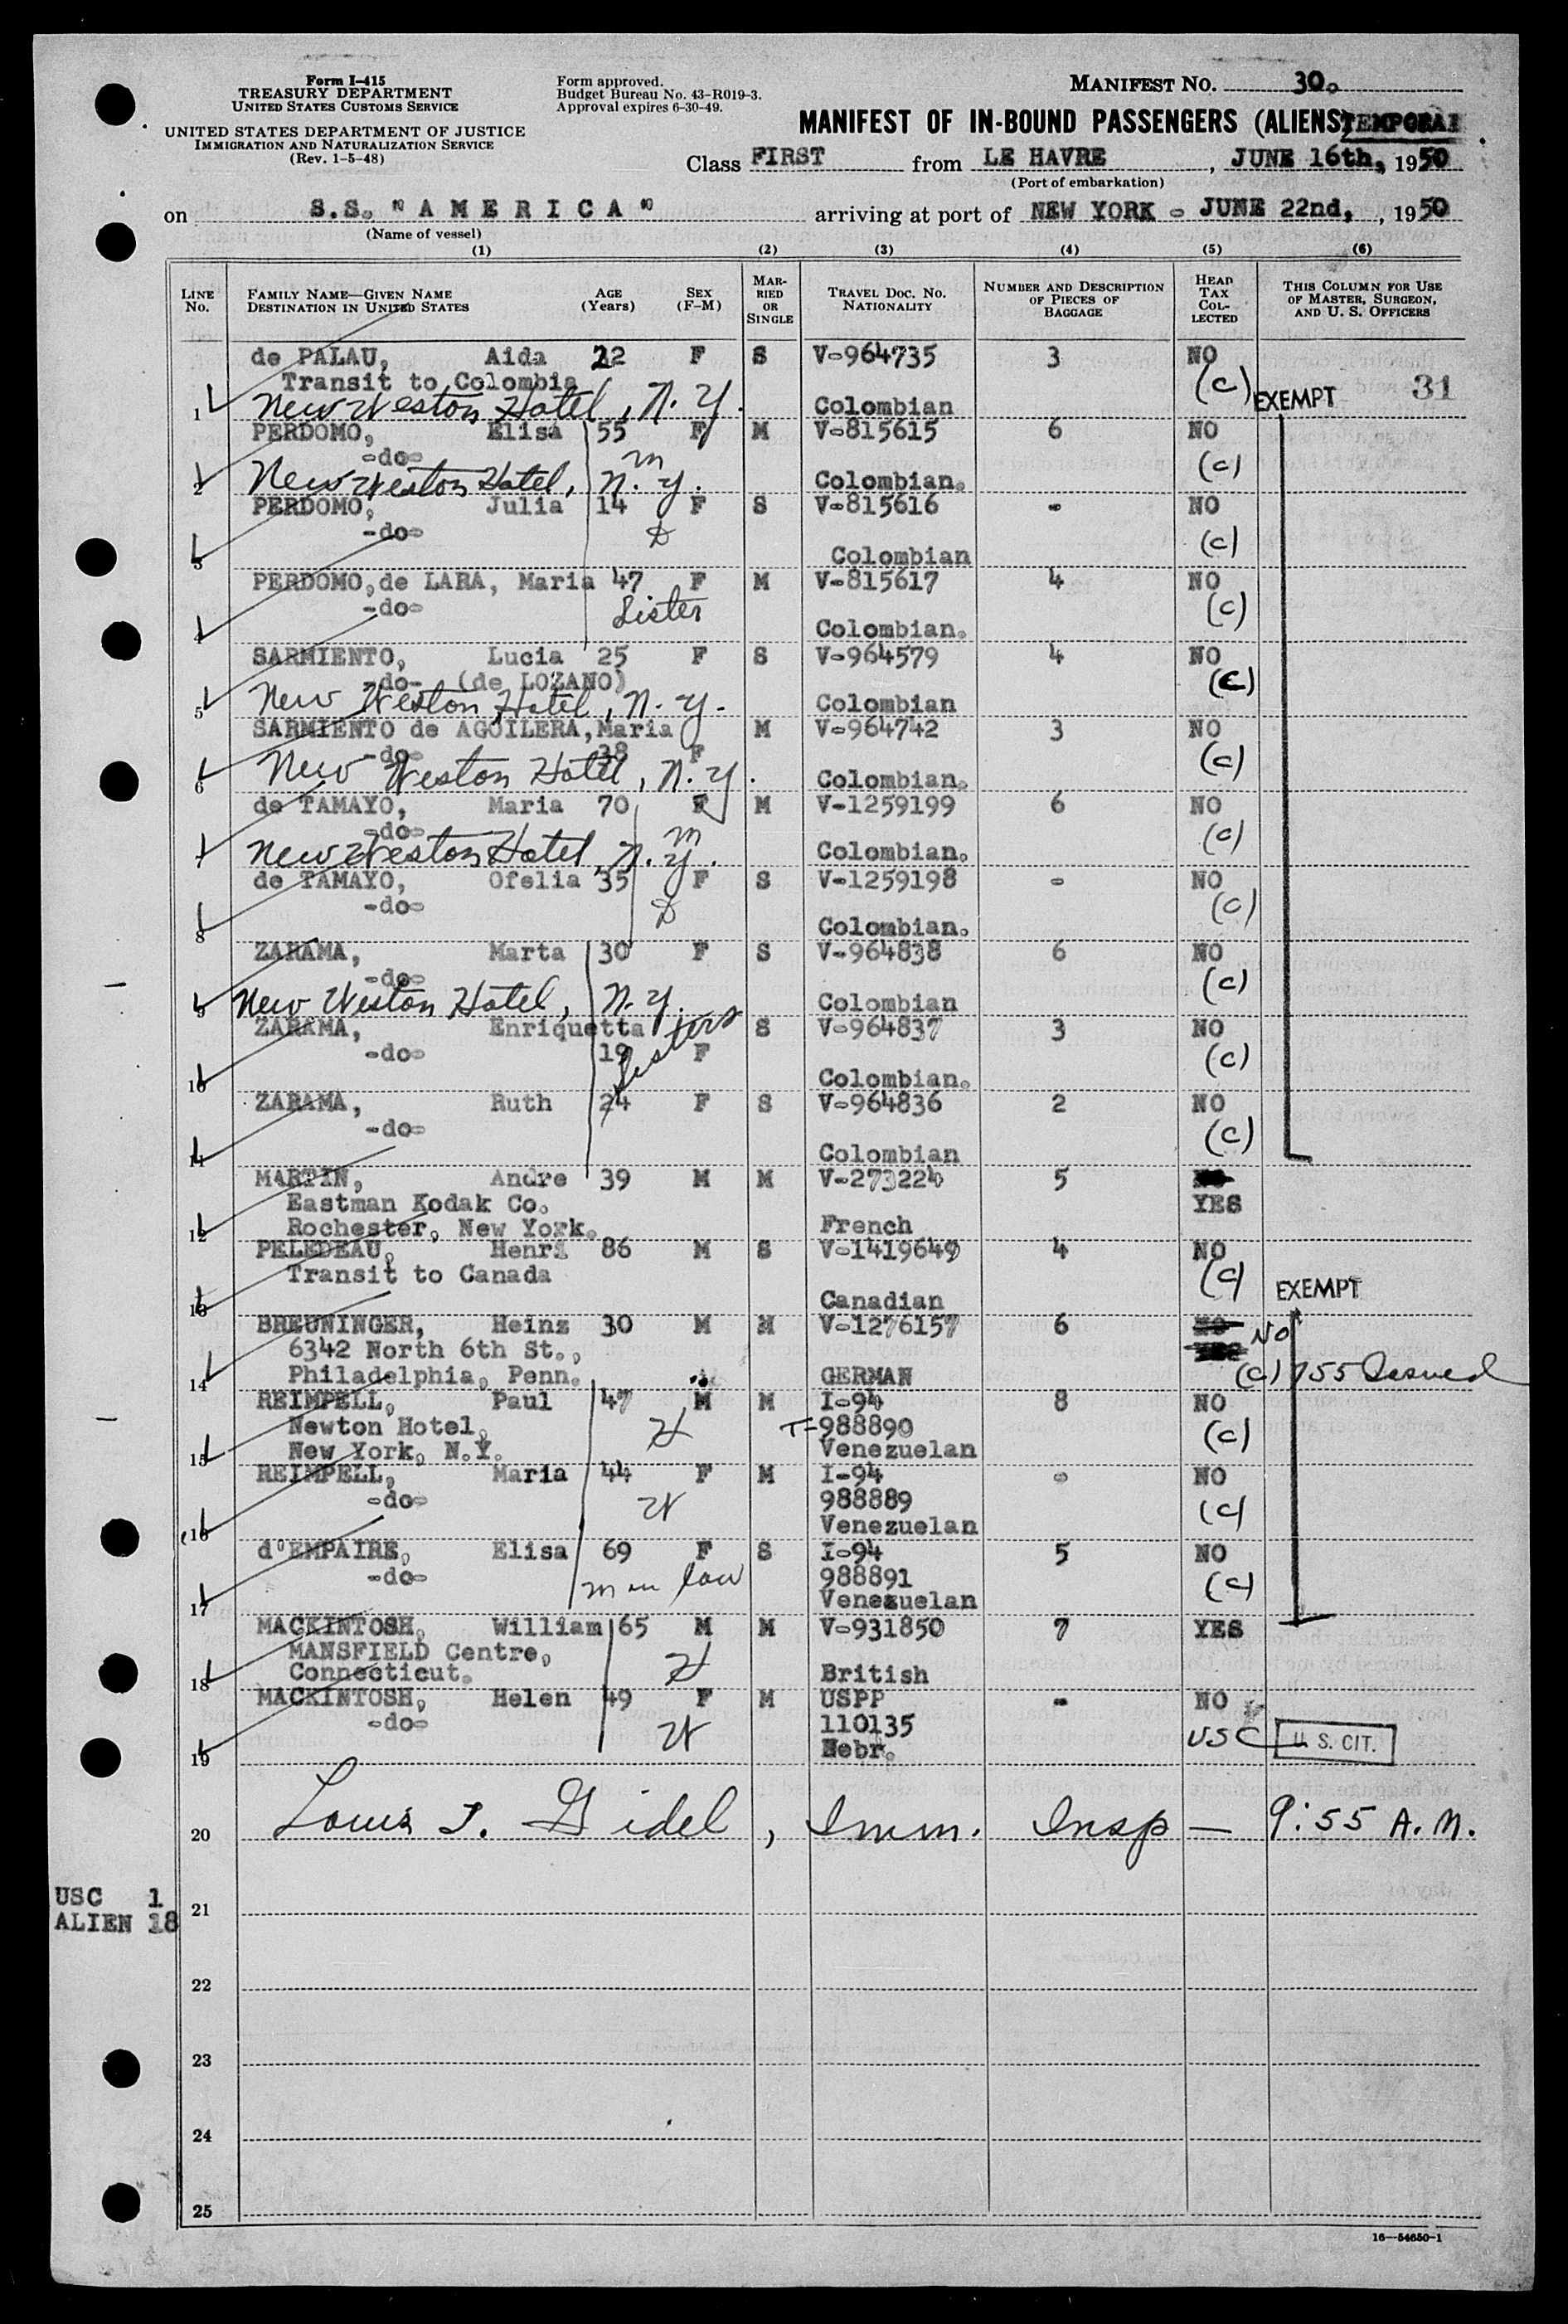 Form I-415
TREASURY DEPARTMENT
UNITED STATES CUSTOMS SERVICE
UNITED STATES DEPARTMENT OF JUSTICE
IMMIGRATION AND NATURALIZATION SERVICE
(Rev. 1-5-48)
Form approved.
Budget Bureau No. 43-R019-3.
Approval expires 6-30-49.
MANIFEST NO. 30.
MANIFEST OF IN-BOUND PASSENGERS (ALIENS)
Class FIRST from LE HAVRE, JUNE 16th, 1950
(Port of embarkation)
on S.S. "AMERICA" arriving at port of NEW YORK - JUNE 22nd, , 1950
(Name of vessel)
(1) (2) (3) (4) (5) (6)
LINE No. FAMILY NAME—GIVEN NAME DESTINATION IN UNITED STATES AGE (Years) SEX (F-M) MARRIED OR SINGLE TRAVEL DOC. NO. NATIONALITY NUMBER AND DESCRIPTION OF PIECES OF BAGGAGE HEAD TAX COLLECTED THIS COLUMN FOR USE OF MASTER, SURGEON, AND U. S. OFFICERS
de PALAU, Aida 22 F S V-964735 3 NO
Transit to Colombia (c) EXEMPT 31
1 New Weston Hotel, N.Y. Colombian
PERDOMO, Elisa 55 F M V-815615 6 NO
-do- m (c)
2 New Weston Hotel, N.Y. Colombian.
PERDOMO, Julia 14 F S V-815616 - NO
-do- D (c)
3 Colombian
PERDOMO,de LARA, Maria 47 F M V-815617 4 NO
-do- Sister (c)
4 Colombian.
SARMIENTO, Lucia 25 F S V-964579 4 NO
-do- (de LOZANO) (c)
5 New Weston Hotel, N.Y. Colombian
SARMIENTO de AGUILERA,Maria M V-964742 3 NO
-do- 38 F (c)
6 New Weston Hotel, N.Y. Colombian.
de TAMAYO, Maria 70 F M V-1259199 6 NO
-do- m (c)
7 New Weston Hotel, N.Y. Colombian.
de TAMAYO, Ofelia 35 F S V-1259198 - NO
-do- D (c)
8 Colombian.
ZARAMA, Marta 30 F S V-964838 6 NO
-do- (c)
9 New Weston Hotel, N.Y. Colombian
ZARAMA, Enriquetta S V-964837 3 NO
-do- 19 F Sisters (c)
10 Colombian.
ZARAMA, Ruth 24 F S V-964836 2 NO
-do- (c)
11 Colombian
MARTIN, Andre 39 M M V-273224 5
Eastman Kodak Co. YES
12 Rochester, New York. French
PELEDEAU, Henri 86 M S V-1419649 4 NO
Transit to Canada (c) EXEMPT
13 Canadian
BREUNINGER, Heinz 30 M M V-1276157 6 NO
6342 North 6th St.,
14 Philadelphia, Penn. GERMAN (c) 755 Issued
REIMPELL, Paul 47 M M I-94 8 NO
Newton Hotel, H T-988890 (c)
15 New York, N.Y. Venezuelan
REIMPELL, Maria 44 F M I-94 - NO
-do- W 988889 (c)
16 Venezuelan
d'EMPAIRE, Elisa 69 F S I-94 5 NO
-do- m in law 988891 (c)
17 Venezuelan
MACKINTOSH, William 65 M M V-931850 7 YES
MANSFIELD Centre, H
18 Connecticut. British
MACKINTOSH, Helen 49 F M USPP - NO
-do- W 110135 USC U. S. CIT.
19 Nebr.
20 Louis J. Gidel, Imm. Insp — 9:55 A.M.
USC 1
ALIEN 18
21
22
23
24
25
16—54650-1